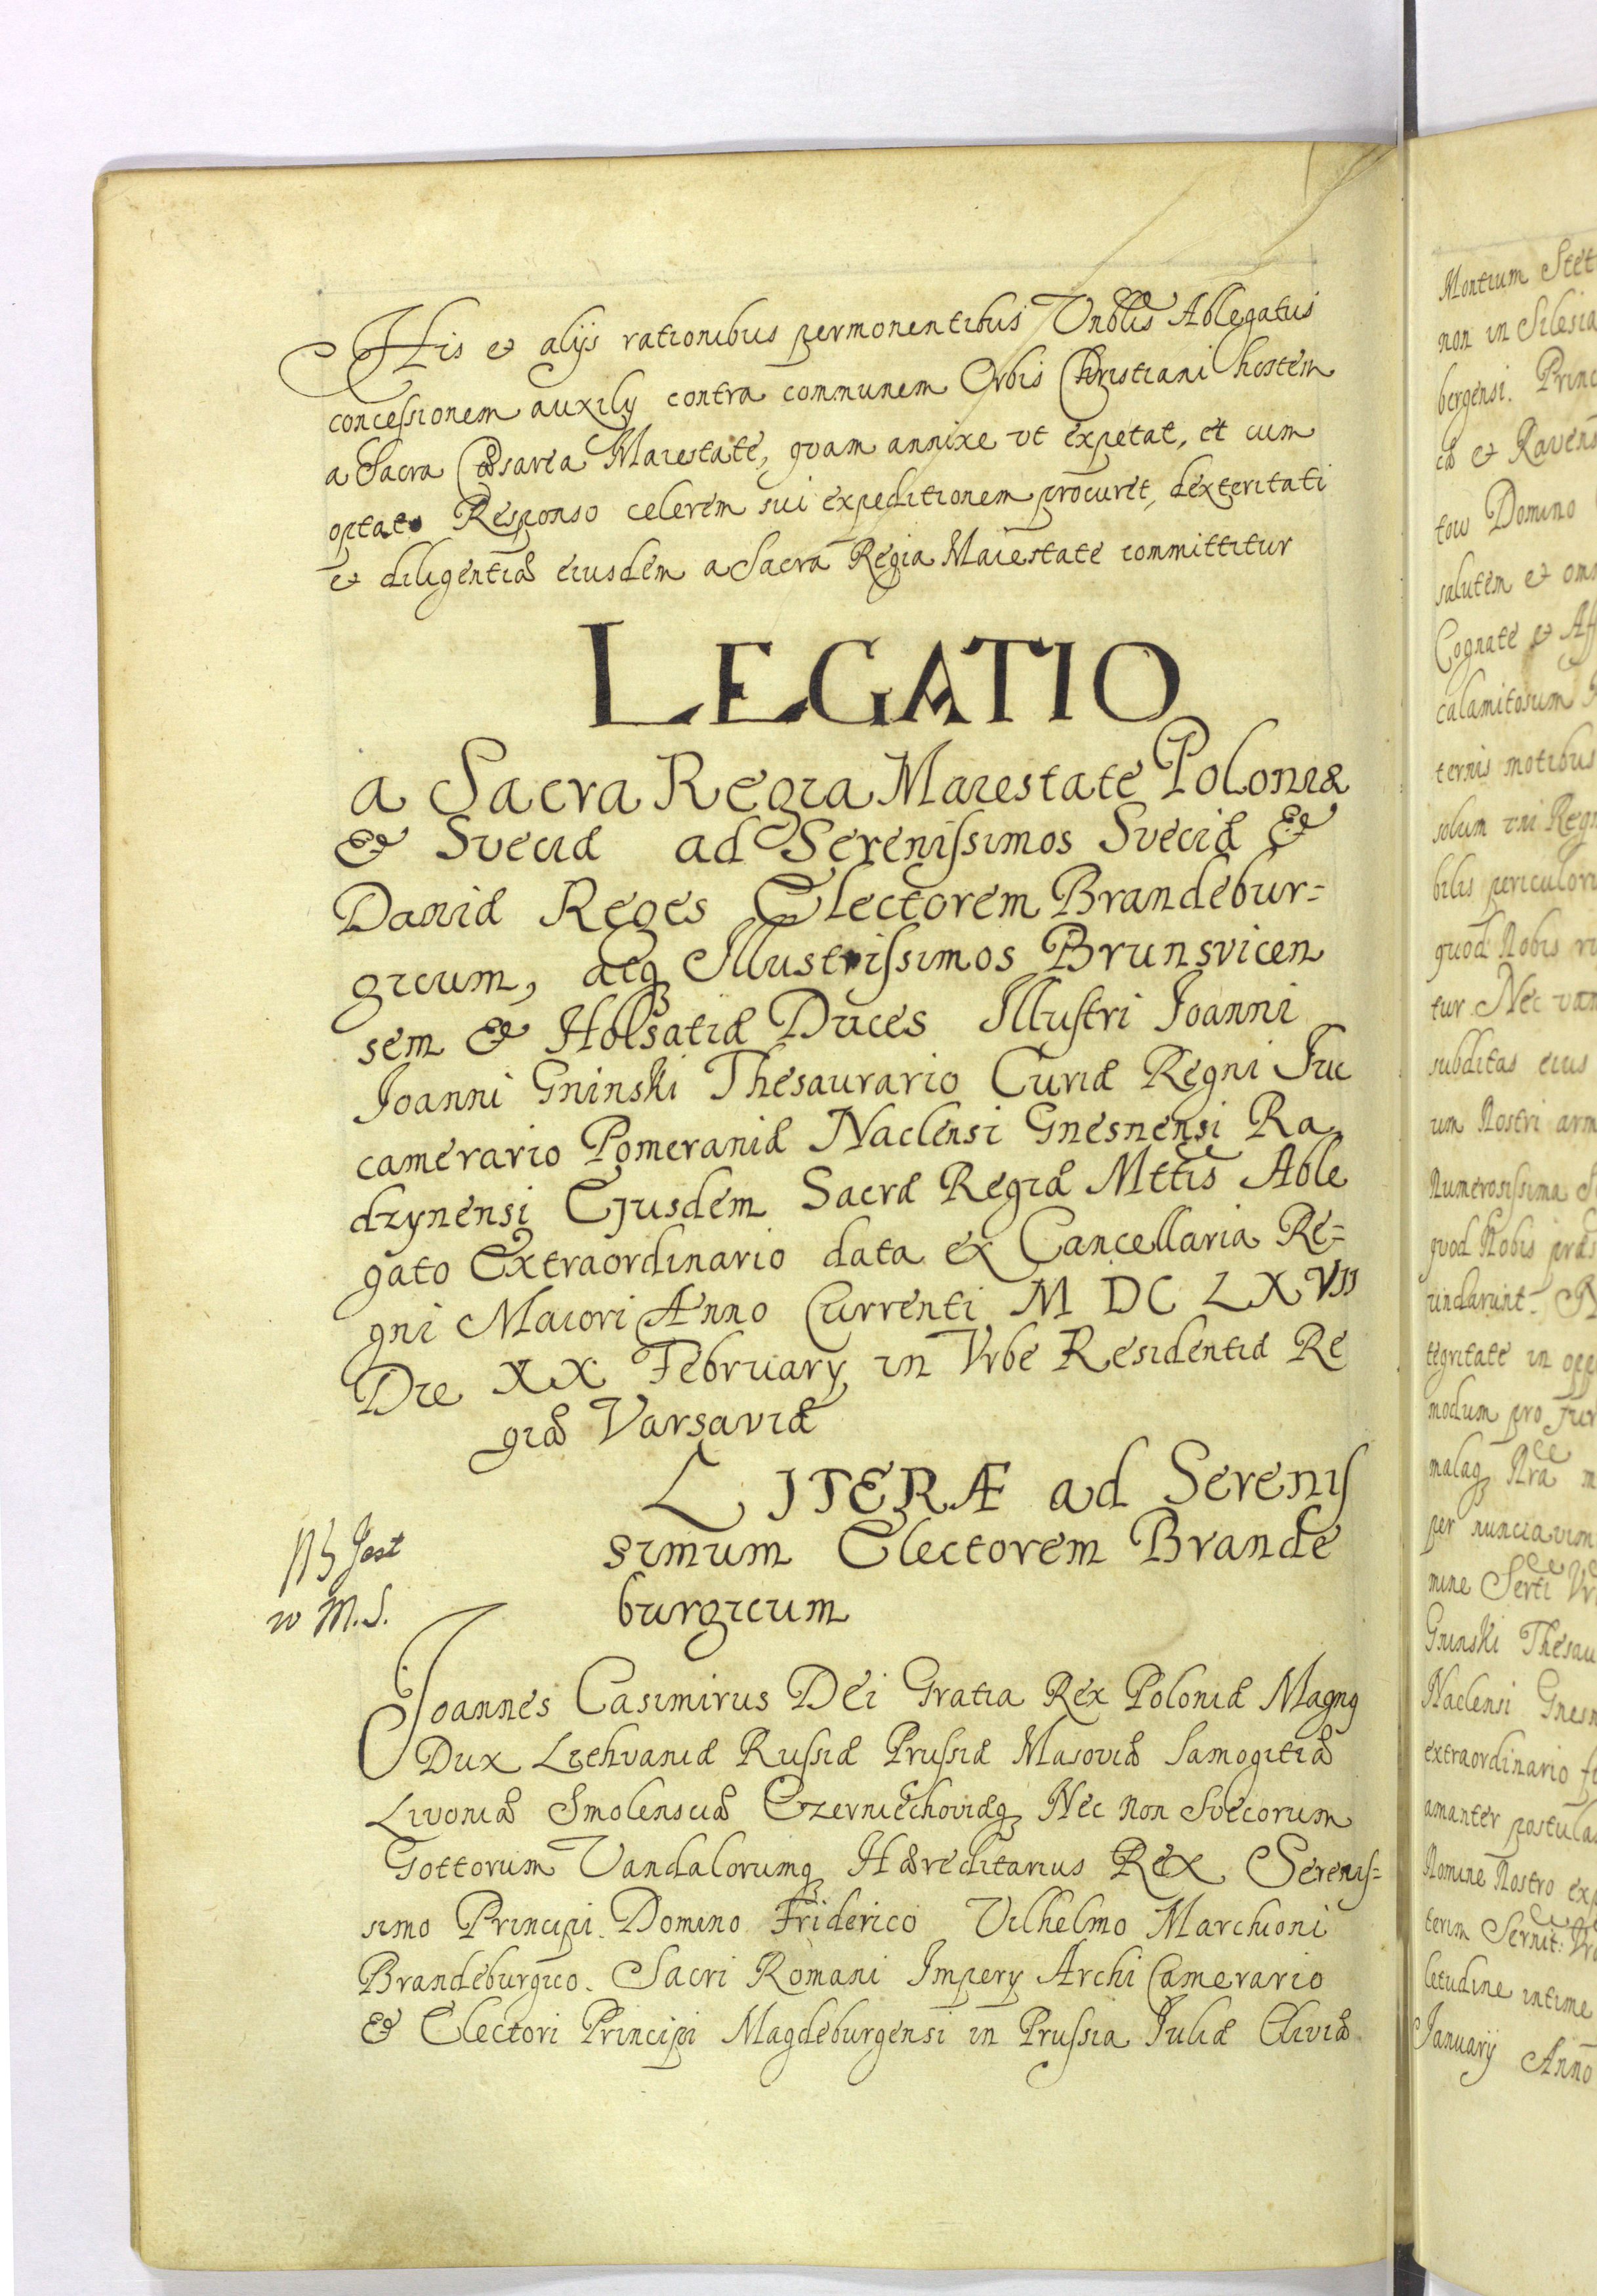 His et alijs rationibus permonentibus Vnblis Ablegatus
concessionem auxily contra communem Orbis Christiani hostem
a Sacra Cæsarea Maiestate, qvam annixe vt expetat, et cum
optato Responso celerem sui expeditionem procuret, dexteritati
et diligentiæ eiusdem a Sacra Regia Maiestate committitur
LEGATIO
a Sacra Regia Maiestate Poloniæ
& Sveciæ ad Serenissimos Sveciæ &
Daniæ Reges Electorem Brandebur=
gicum, atq Illustrissimos Brunsvicen
sem & Holsatiæ Duces Illustri Joanni
Joanni Gninski Thesaurario Curiæ Regni Suc
camerario Pomeraniæ Naclensi Gnesnensi Ra
dzynensi Ejusdem Sacræ Regiæ Mttis Able
gato Extraordinario data ex Cancellaria Re=
gni Maiori Anno Currenti M DC LXVII
Die XX February in Vrbe Residentiæ Re
giæ Varsaviæ
LITERÆ ad Serenis
simum Electorem Brande
burgicum
NB Jest
w M.S.
Joannes Casimirus Dei Gratia Rex Poloniæ Magnq
Dux Liehvaniæ Russiæ Prussiæ Masoviæ Samogitiæ
Livoniæ Smolensciæ Czerniechoviæq Nec non Svecorum
Gottorum Vandalorumq Hæreditarius Rex Serenis=
simo Principi Domino Friderico Vilhelmo Marchioni
Brandeburgico. Sacri Romani Impery Archi Camerario
& Electori Principi Magdeburgensi in Prussia Juliæ Cliviæ
Montium Stet
non in Silesia
bergensi. Princ
cæ et Ravens
tow Domino
salutem et om
Cognate et Aff
calamitosum
ternis motibus
solum vni Regn
bilis periculor
qvod Nobis
tur Nec van
subditas eius
um Nostri arm
Numerosissima
qvod Nobis præs
undarunt.
tegritate in
modum pro Jur
malaq Nra
per nunciavim
mine Serti Vr
Gninski Thesau
Naclensi Gnesn
extraordinario
amanter postula
Nomine Nostro exp
terim Sernit: Vræ
letudine intime
Januarij Anno